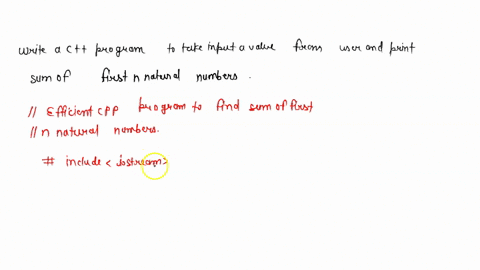 Write a C++ program to take input a value from user and print
sum of first n natural numbers.
// Efficient CPP program to find sum of first
// n natural numbers.
# include < iostream>